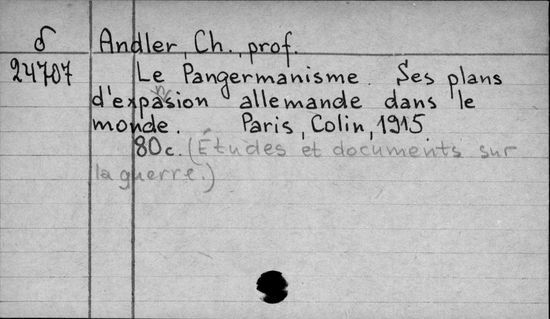 δ Andler, Ch., prof.
24707 Le Pangermanisme. Ses plans
d'expansion allemande dans le
monde. Paris, Colin, 1915
80c. (Études et documents sur
la guerre.)